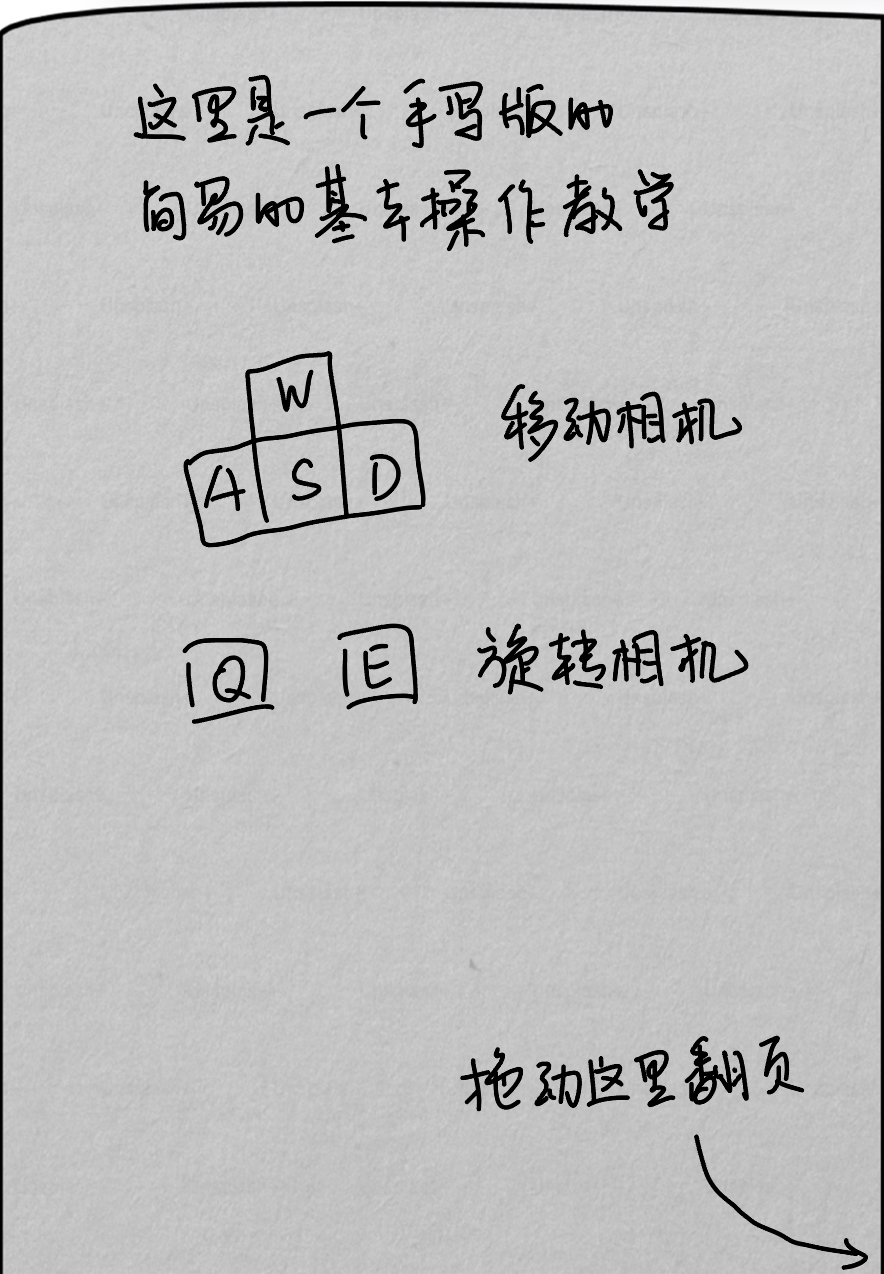 这里是一个手写版的
简易的基本操作教学
W
移动相机
A S D
Q E 旋转相机
拖动这里翻页